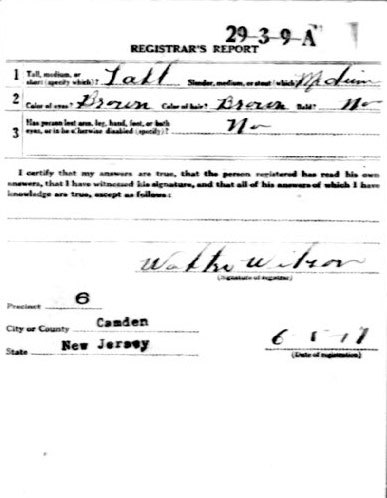 29-3-9-A
REGISTRAR'S REPORT
1 Tall, medium, or short (specify which)? Tall Slender, medium, or stout (which)?
2 Color of eyes? Brown Color of hair? Brown Bald? No
3 Has person lost arm, leg, hand, foot, or both eyes, or is he otherwise disabled (specify)? No
I certify that my answers are true, that the person registered has read his own
answers, that I have witnessed his signature, and that all of his answers of which I have
knowledge are true, except as follows:
Wilson
(Signature of registrar)
Precinct 6
City or County Camden
State New Jersey
6 5 17
(Date of registration)